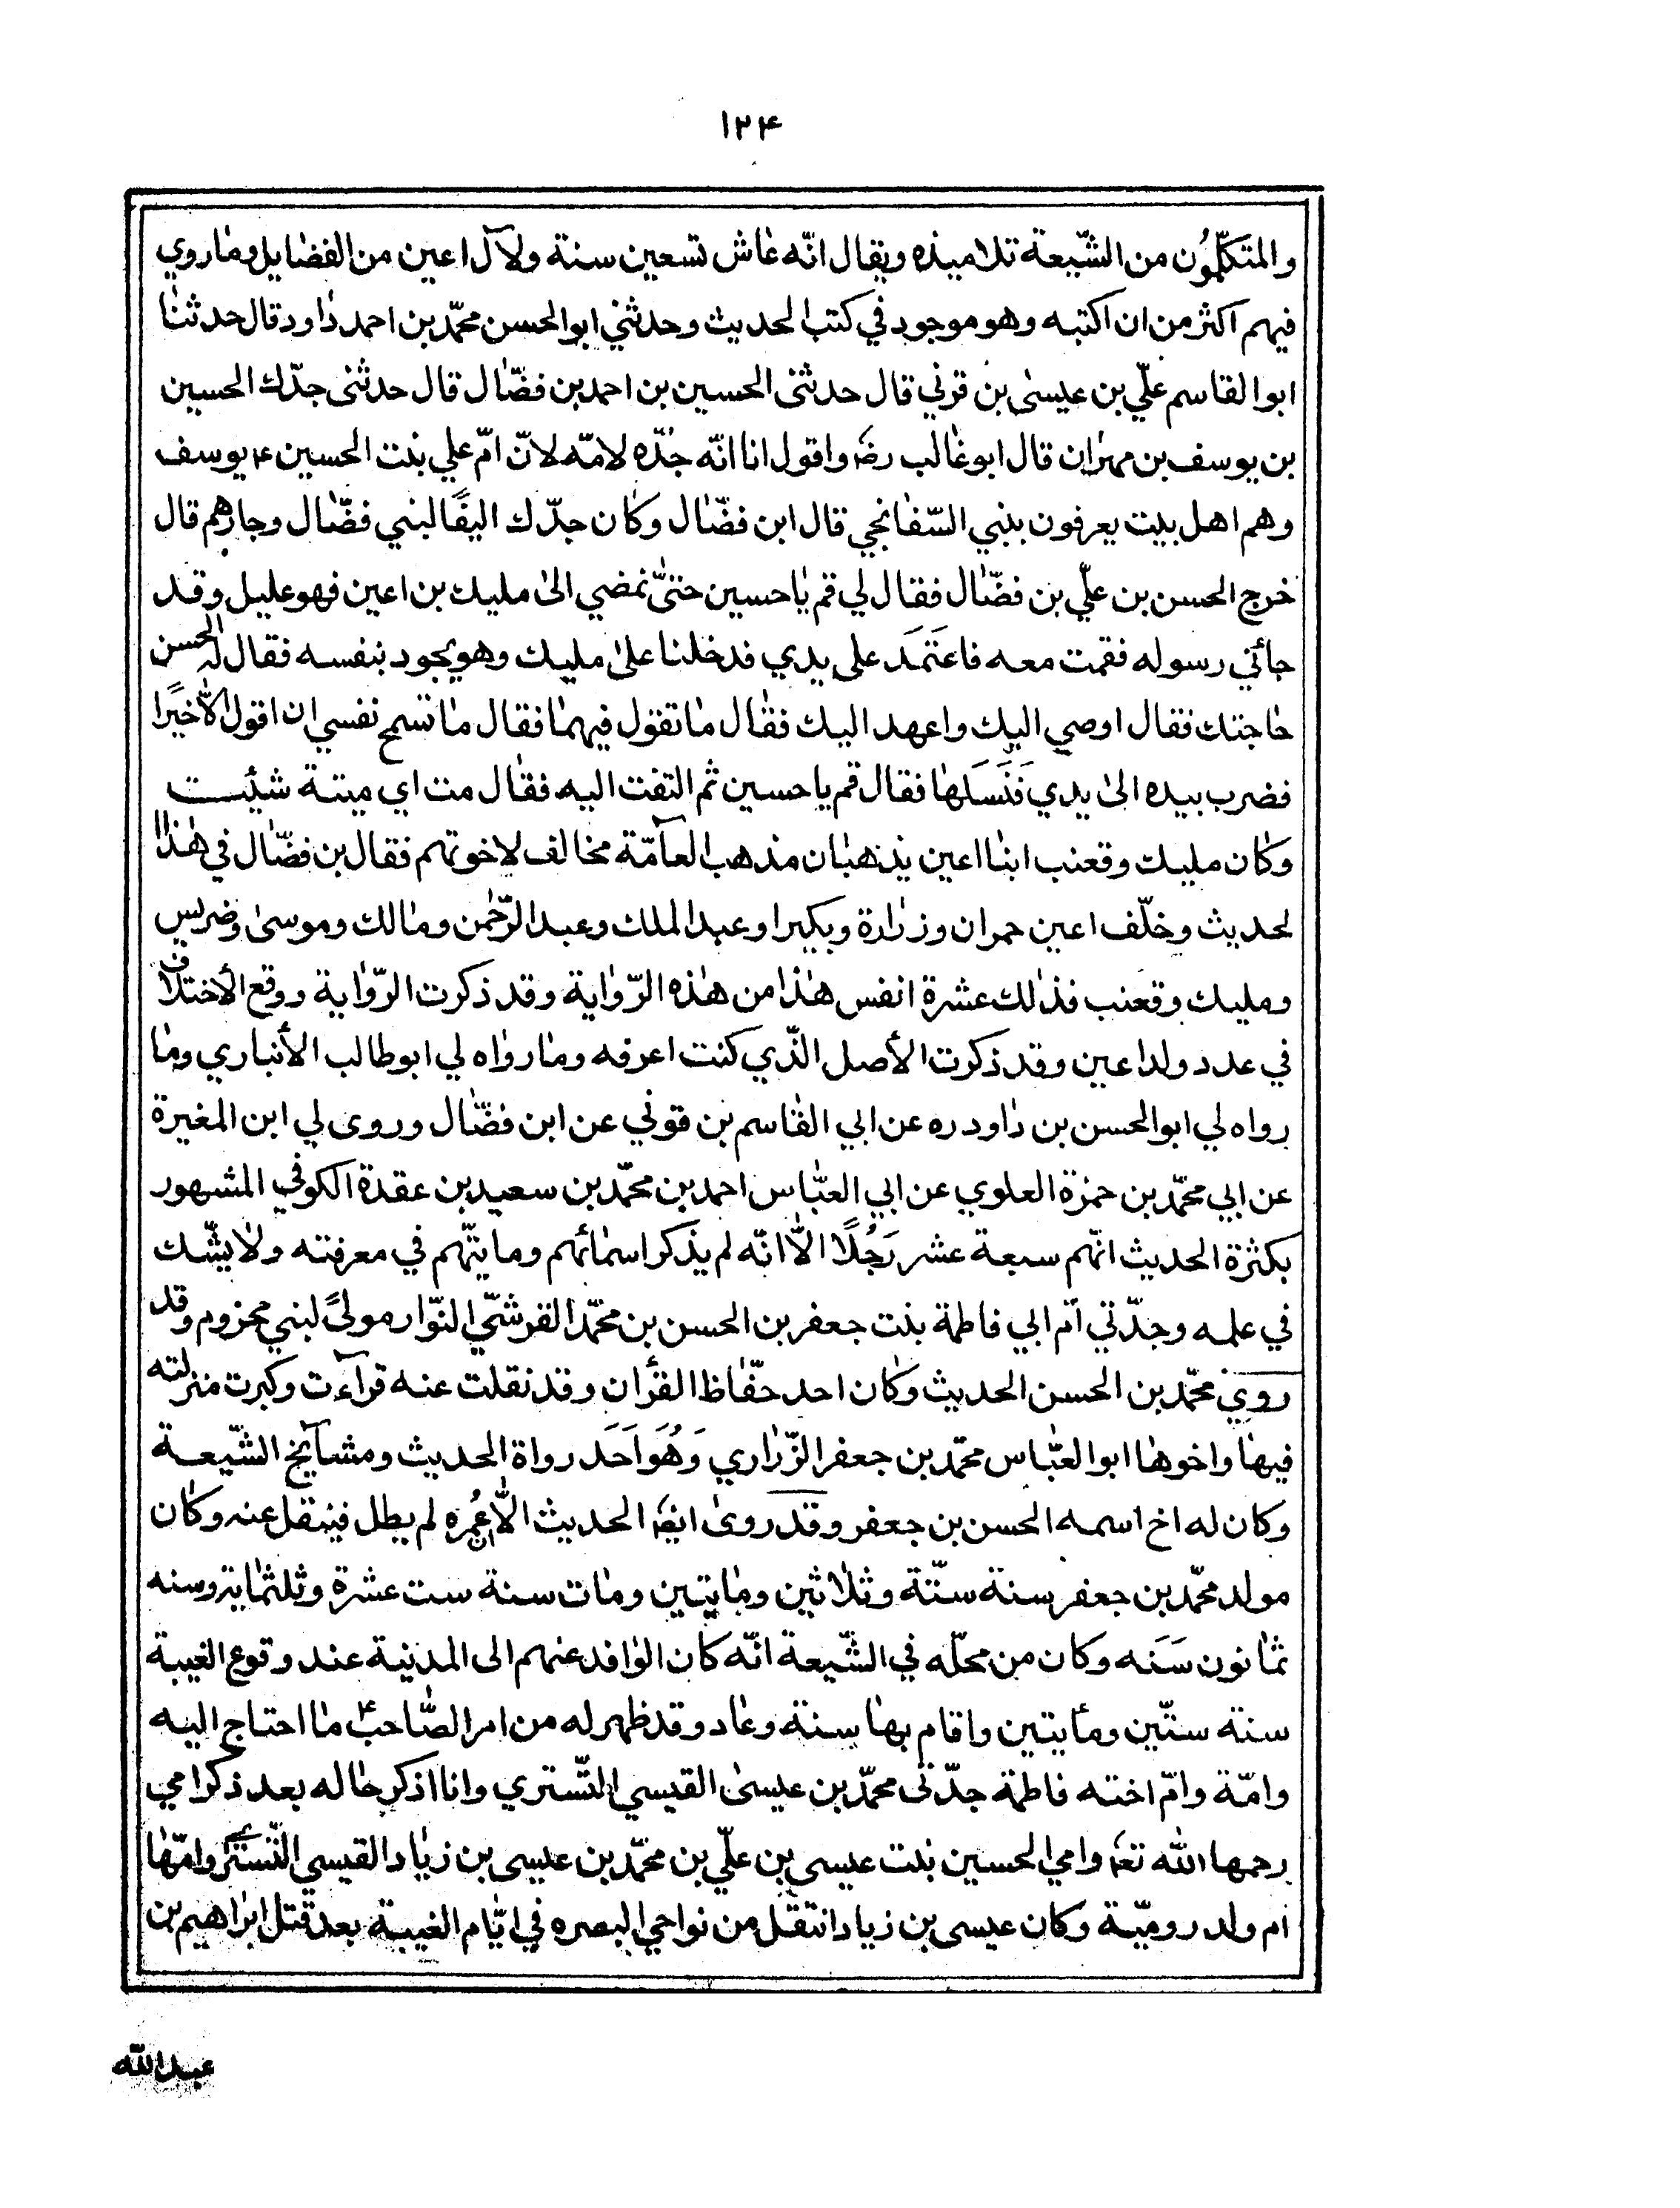 ١٢۴
والمتكلّمُون من الشّيعة تلاميذه ويقال انّه عاش تسعين سنة ولآل اعين من الفضايل وما روي
فيهم اكثر من ان اكتبه وهو موجود في كتب الحديث وحدثني ابوالحسن محمّد بن احمد داود قال حدثنا
ابوالقاسم علّي بن عيسىٰ بن قرني قال حدثنى الحسين بن احمد بن فضّال قال حدثنى جدّك الحسين
بن يوسف بن مهران قال ابوغالب رضۀ واقول انا انّه جدّه لامّه لانّ امّ علي بنت الحسين يوسف
وهم اهل بيت يعرفون ببني السّفانجي قال ابن فضّال وكان جدّك اليفًا لبني فضّال وجارهم قال
خرج الحسن بن علّي بن فضّال فقال لي قم يا حسين حتىّٰ نمضي الىٰ مليك بن اعين فهو عليل وقد
جائني رسوله فقمت معه فاعتَمَدَ على يدي فدخلنا علىٰ مليك وهو يجود بنفسه فقال له الحسن
حاجتك فقال اوصي اليك واعهد اليك فقال ما تقول فيهما فقال ما تسمح نفسي ان اقول الّا خيرًا
فضرب بيده الىٰ يدي فَنَسَلَها فقال قم يا حسين ثم التفت اليه فقال مت اي ميتة شئت
وكان مليك وقعنب ابنا اعين يذهبان مذهب العآمّة مخالف لاخوتهم فقال بن فضّال في هٰذا ا
لحديث وخلّف اعين حمران وزرارة وبكيرا وعبدالملك وعبدالرّحمٰن ومالك وموسىٰ وضريس
ومليك وقعنب فذٰلك عشرة انفس هٰذا من هٰذه الرّواية وقد ذكرت الرّواية ووقع الأختلاف
في عدد ولد اعين وقد ذكرت الأصل الّذي كنت اعرفه وما رواه لي ابوطالب الأنباري وما
رواه لي ابوالحسن بن داود ره عن ابي القاسم بن قوني عن ابن فضّال وروى لي ابن المغيرة
عن ابي محمّد بن حمزة العلوي عن ابي العبّاس احمد بن محمّد بن سعيد بن عقدة الكوفي المشهور
بكثرة الحديث انّهم سبعة عشر رَجُلًا الّا انّه لم يذكر اسمائهم وما يتّهم في معرفته ولا يشّك
في علمه وجدّتي امّ ابي فاطمة بنت جعفر بن الحسن بن محمّد القرشّي النّوار مولىً لبني مخزوم وقد
روي محمّد بن الحسن الحديث وكان احد حفّاظ القرأن وقد نقلت عنه قرآءت وكبرت منزلته
فيها واخوها ابوالعبّاس محمّد بن جعفر الزّراري وَهُوَ اَحَد رواة الحديث ومشآيخ الشّيعة
وكان له اخ اسمه الحسن بن جعفر وقد روىٰ ايضۀ الحديث الّا ان عُمره لم يطل فينقل عنه وكان
مولد محمّد بن جعفر سنة ستّة وثلاثين ومايتين ومات سنة ست عشرة وثلثماية وسنه
ثمانون سَنَه وكان من محلّه في الشّيعة انّه كان الوافد عنهم الى المدنية عند وقوع الغيبة
سنة ستّين ومأيتين واقام بها سنة وعاد وقد ظهر له من امر الصّاحب ما احتاج اليه
وامّة وامّ اخته فاطمة جدّتى محمّد بن عيسىٰ القيسي التّستري وانا اذكر حاله بعد ذكر امي
رحمها اللّٰه تعۀ وامي الحسين بنت عيسى بن علّي بن محمّد بن عيسى بن زياد القيسي التّستري وامّها
ام ولد روميّة وكان عيسى بن زياد انتقل من نواحي البصره في ايّام الغيبة بعد قتل ابراهيم بن
عبداللّه